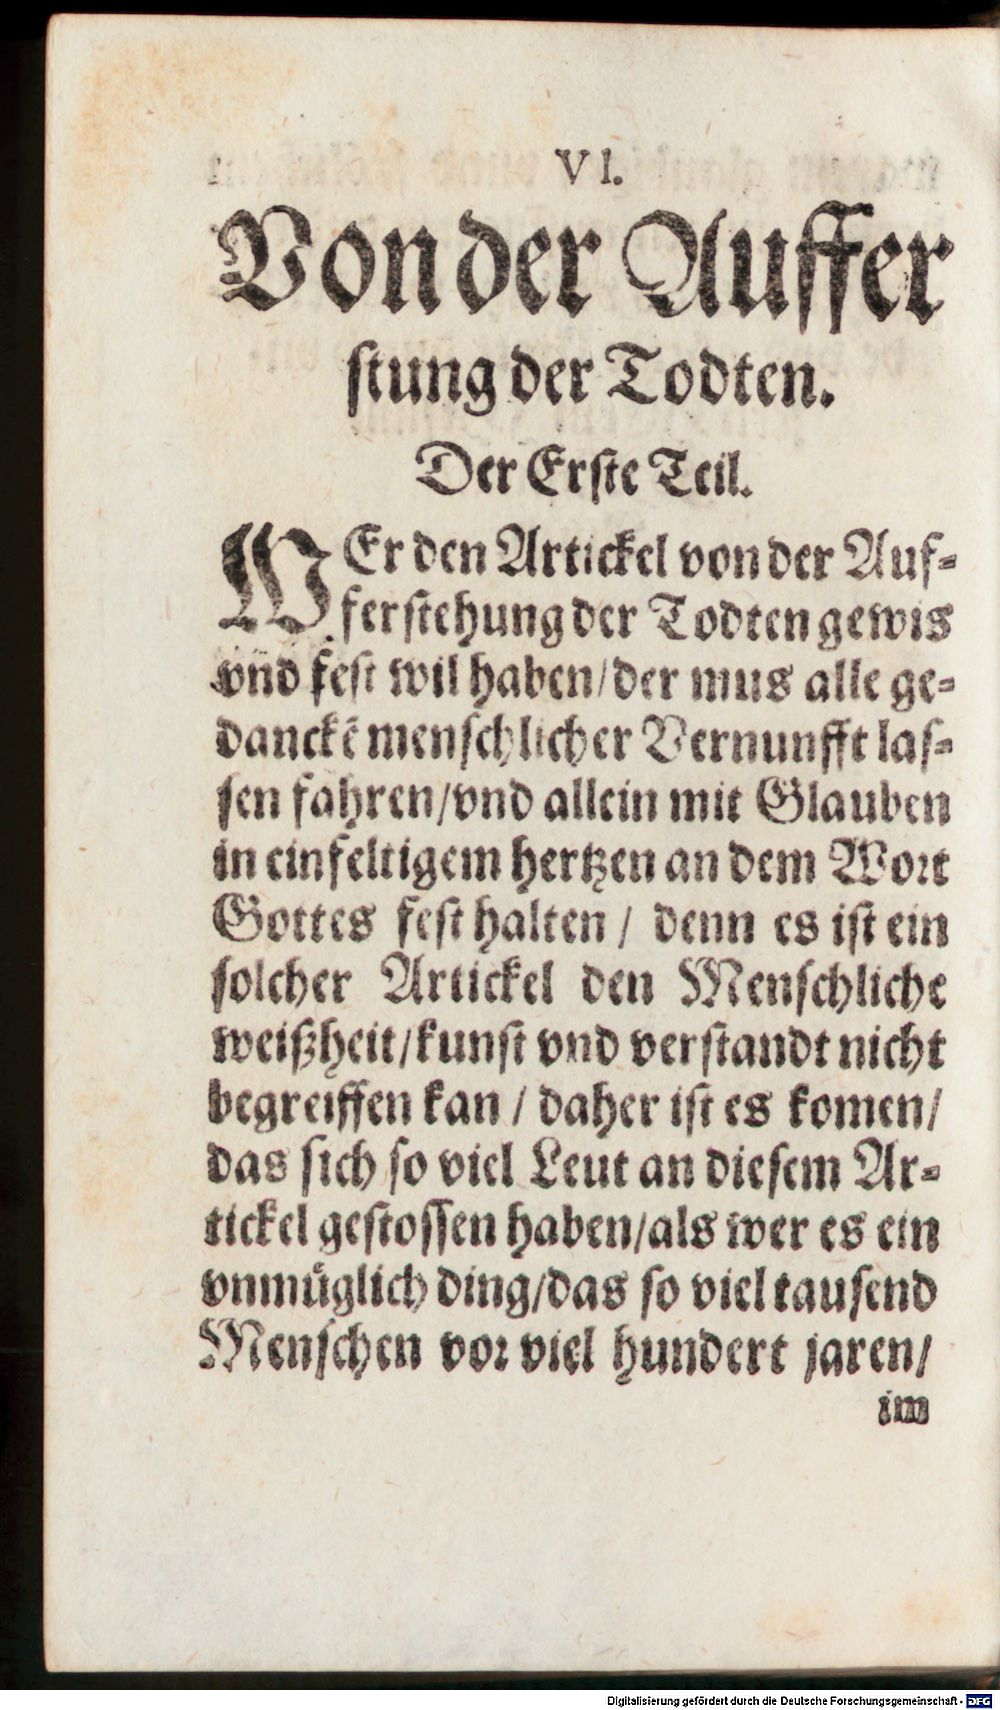 VI.
Von der Auffer
stung der Todten.
Der Erste Teil.
WEr den Artickel von der Auf-
ferstehung der Todten gewis
vnd fest wil haben/der mus alle ge-
danckẽ menschlicher Vernunfft las-
sen fahren/vnd allein mit Glauben
in einfeltigem hertzen an dem Wort
Gottes fest halten / denn es ist ein
solcher Artickel den Menschliche
weißheit/kunst vnd verstandt nicht
begreiffen kan / daher ist es komen/
das sich so viel Leut an diesem Ar-
tickel gestossen haben/als wer es ein
vnmüglich ding/das so viel tausend
Menschen vor viel hundert jaren/
im
Digitalisierung gefördert durch die Deutsche Forschungsgemeinschaft - DFG